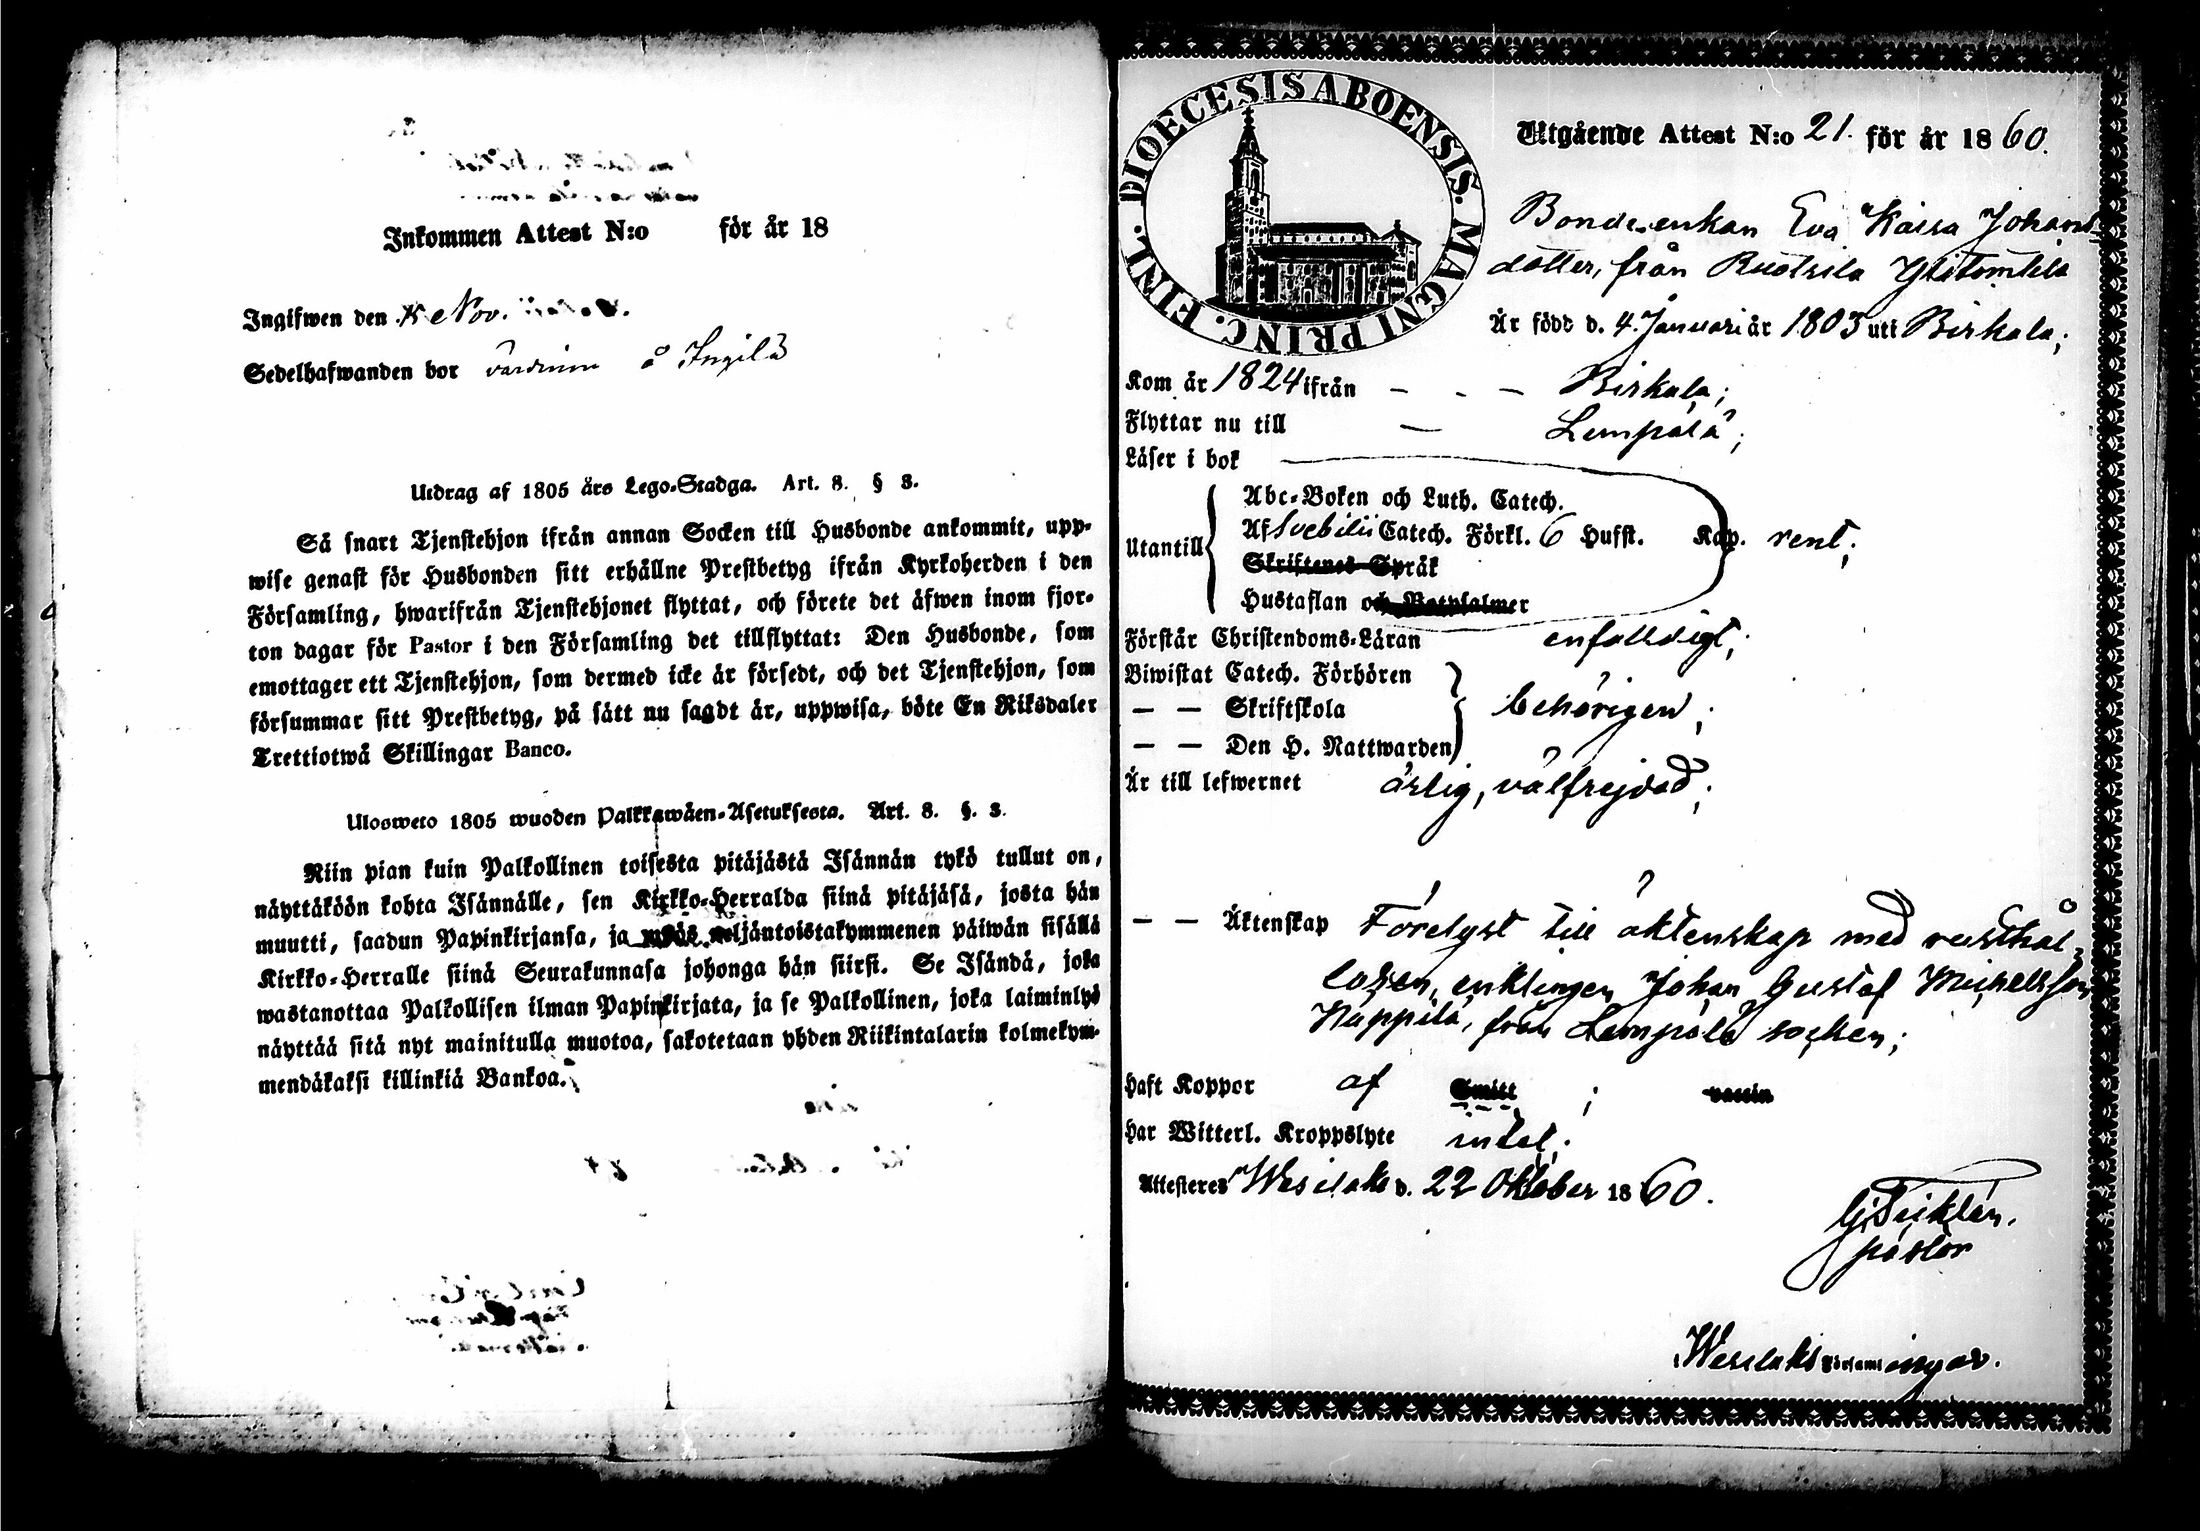 Inkommen Attest N:o för år 18
Ingifwen den Nov.
Sedelhafwanden bor värdinn å Ingilä
Utdrag af 1805 års Lego-Stadga. Art. 8. § 3.
Så snart Tjenstehjon ifrån annan Socken till Husbonde ankommit, upp-
wise genast för Husbonden sitt erhållne Prestbetyg ifrån Kyrkoherden i den
Församling, hwarifrån Tjenstehjonet flyttat, och förete det äfwen inom fjor-
ton dagar för Pastor i den Församling det tillflyttat: Den Husbonde, som
emottager ett Tjenstehjon, som dermed icke är försedt, och det Tjenstehjon, som
försummar sitt Prestbetyg, på sätt nu sagdt är, uppwisa, böte En Riksdaler
Trettiotwå Skillingar Banco.
Ulosweto 1805 wuoden Palkkawäen-Asetuksesta. Art. 8. §. 3.
Niin pian kuin Palkollinen toisesta pitäjästä Isännän tykö tullut on,
näyttäköön kohta Isännälle, sen Kirkko-Herralda siinä pitäjäsä, josta hän
muutti, saadun Papinkirjansa, ja myös neljäntoistakymmenen päiwän sisällä
Kirkko-Herralle siinä Seurakunnasa johonga hän siirsi. Se Isändä, joka
wastanottaa Palkollisen ilman Papinkirjata, ja se Palkollinen, joka laiminlyö
näyttää sitä nyt mainitulla muotoa, sakotetaan yhden Riikintalarin kolmekym-
mendäkaksi killinkiä Bankoa.
DIOECESIS ABOENSIS. MAGNI PRINC. FINL.
Utgående Attest N:o 21. för år 1860.
Bondeenkan Eva Kaisa Johans
dotter, från Ruotsila
Är född d. 4. Januari år 1803 uti Birkala;
Kom år 1824 ifrån – - – Birkala;
Flyttar nu till — Lempälä;
Läser i bok
Abc-Boken och Luth. Catech.
Utantill Af Svebilii Catech. Förkl. 6 Hufst. Kap. rent;
Skriftenes Språk
Hustaflan och Botpsalmer
Förstår Christendoms-Läran enfalldigt;
Biwistat Catech. Förhören
— — Skriftskola behörigen;
— — Den H. Nattwarden
Är till lefwernet ärlig, välfrejdad;
— — Äktenskap Förelyst till äktenskap med rusthål-
laren, enklingen Johan Gustaf Michellsson
Näppilä, från Lempälä socken;
Haft Koppor af Smitt ; vaccin
Har Witterl. Kroppslyte intet;
Attesteres Wesilaks d. 22 Oktober 1860.
pastor
Wesilaks Församlingar.